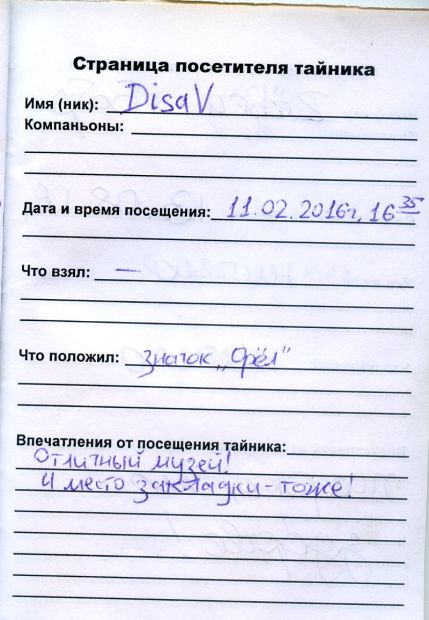 Страница посетителя тайника
Имя (ник): DisaV
Компаньоны:
Дата и время посещения: 11.02.2016г, 16 35
Что взял: —
Что положил: значок „Орёл"
Впечатления от посещения тайника:
Отличный музей!
И место закладки - тоже!